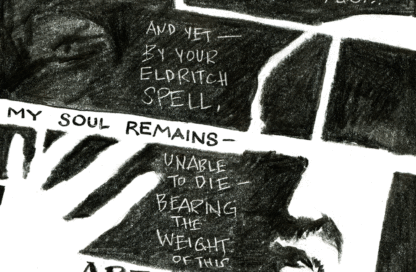 AND YET —
BY YOUR
ELDRITCH
SPELL,
MY SOUL REMAINS —
UNABLE
TO DIE —
BEARING
THE
WEIGHT
OF THIS